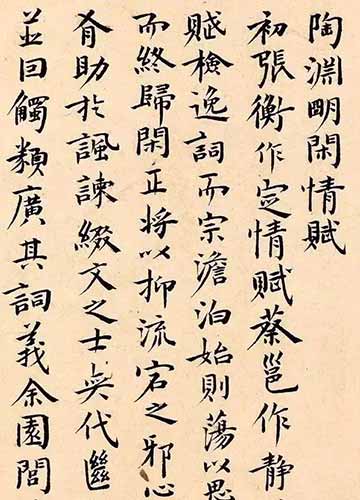 陶淵明閑情賦
初張衡作定情賦蔡邕作静
賦檢逸詞而宗澹泊始則蕩以思
而終歸閑正將以抑流宕之邪心
有助於諷諫綴文之士奕代繼
並因觸類廣其詞義余園閭